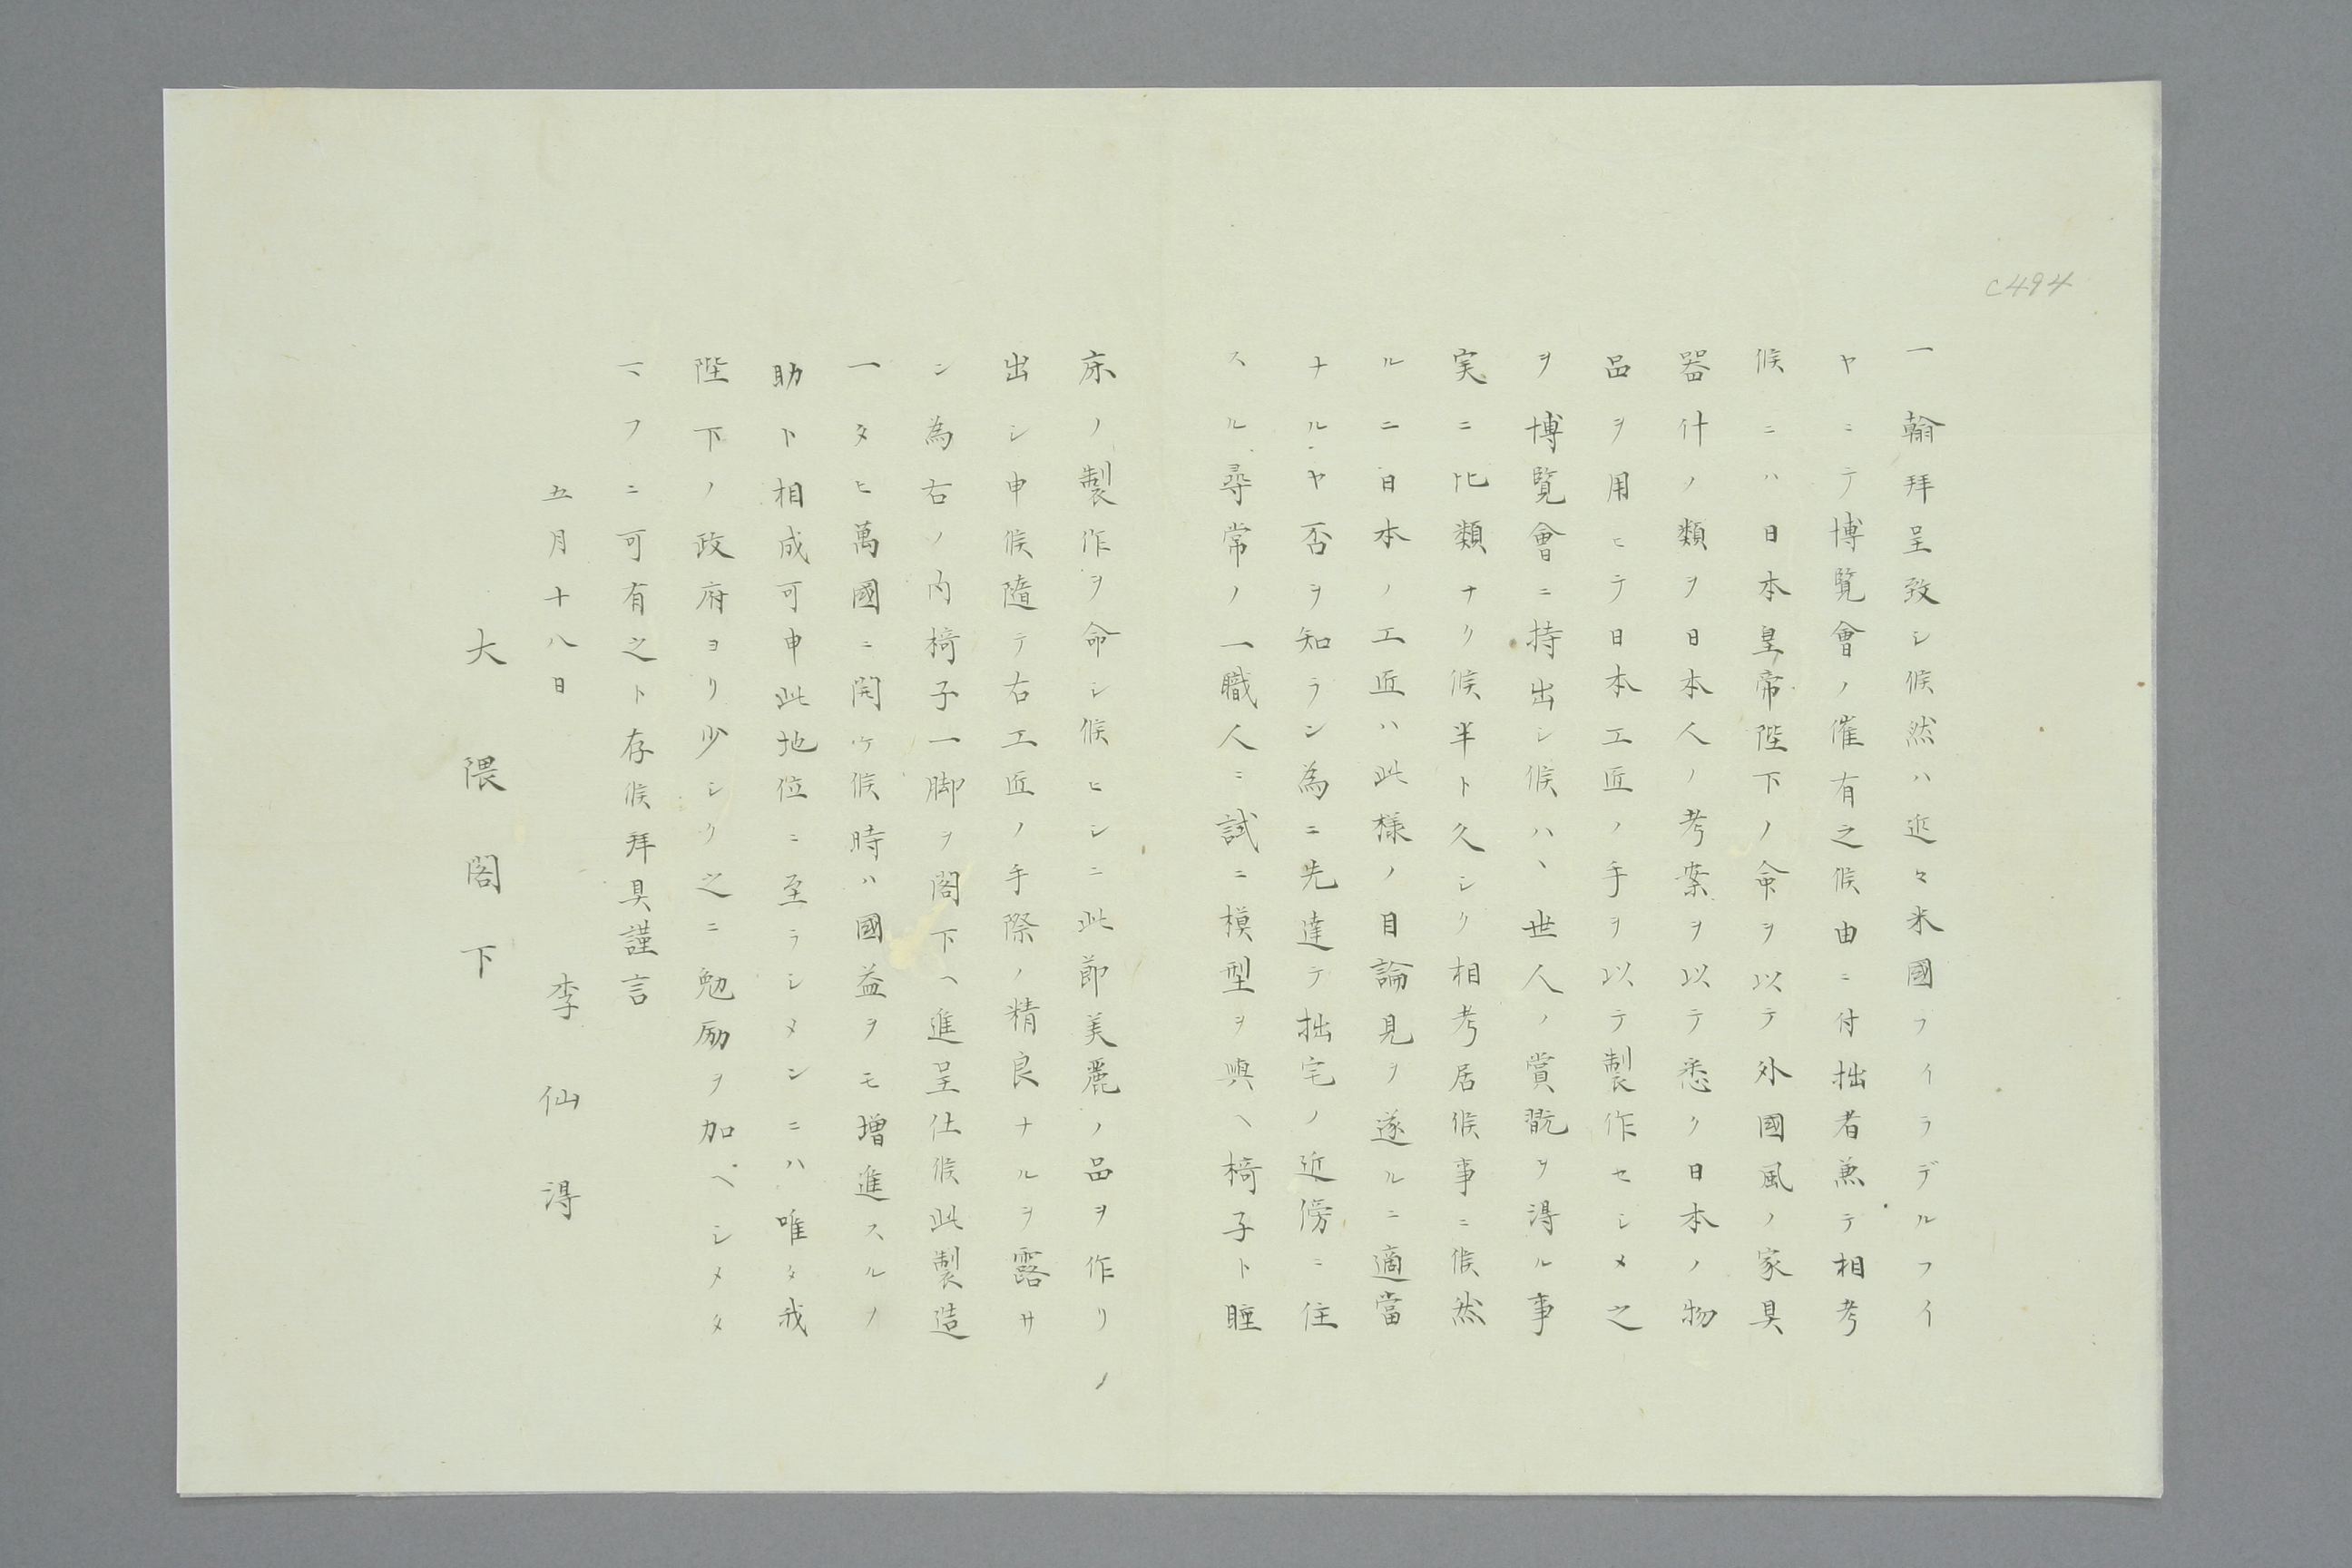 c494
一翰拜呈致シ候然ハ近々米國フイラデルフイ
ヤニテ博覧會ノ催有之候由ニ付拙者兼テ相考
候ニハ日本皇帝陛下ノ命ヲ以テ外國風ノ家具
器什ノ類ヲ日本人ノ考案ヲ以テ悉ク日本ノ物
品ヲ用ヒテ日本工匠ノ手ヲ以テ製作セシメ之
ヲ博覧會ニ持出シ候ハヽ世人ノ賞翫ヲ得ル事
実ニ比類ナク候半ト久シク相考居候事ニ候然
ルニ日本ノ工匠ハ此様ノ目論見ヲ遂ルニ適當
ナルヤ否ヲ知ラン為ニ先達テ拙宅ノ近傍ニ住
スル尋常ノ一職人ニ試ニ模型ヲ與ヘ椅子ト睡
床ノ製作ヲ命シ候ヒシニ此節美麗ノ品ヲ作リノ
出シ申候隨テ右工匠ノ手際ノ精良ナルヲ露サ
ン為右ノ内椅子一脚ヲ閣下ヘ進呈仕候此製造
一タヒ萬國ニ開ケ候時ハ國益ヲモ増進スルノ
助ト相成可申此地位ニ至ラシメンニハ唯タ我
陛下ノ政府ヨリ少シク之ニ勉励ヲ加ヘシメタ
マフニ可有之ト存候拜具謹言
五月十八日
李仙得
大隈閣下